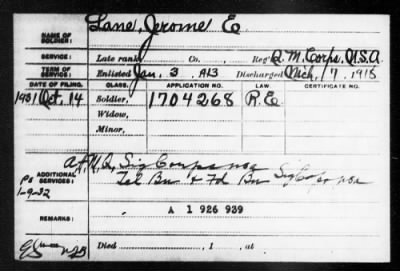 NAME OF SOLDIER: Lane, Jerome E
SERVICE: Late rank, Co., Reg't Q. M. Corps, U.S.A
TERM OF SERVICE: Enlisted Jan. 3, 1913 Discharged Mch. 17, 1915
DATE OF FILING. CLASS. APPLICATION NO. LAW CERTIFICATE NO.
1931 Oct. 14 Soldier, 1704268 R.E.
Widow,
Minor,
ADDITIONAL SERVICES: Sig Corps USA
Ps Tel Bn & Fd Bn Sig Corps USA
1-9-32
REMARKS: A 1 926 939
Died , 1 , at